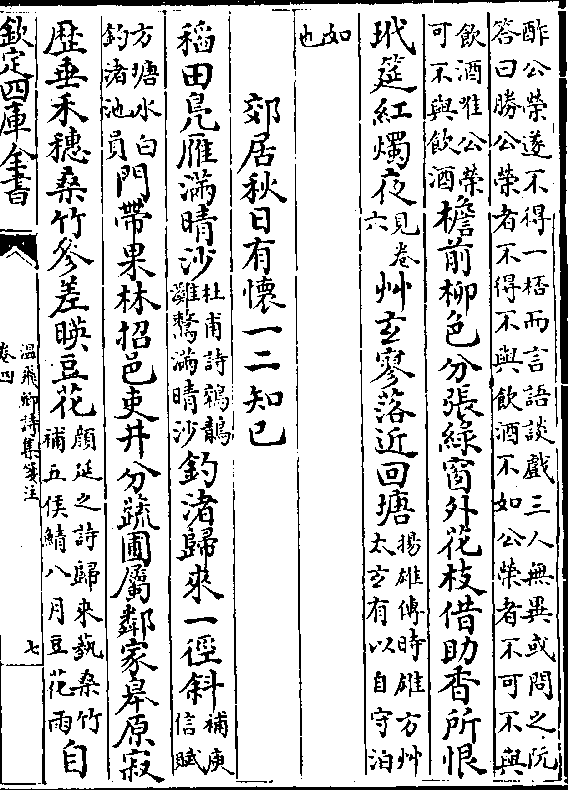 酢公榮遂不得一桮而言語談戲三人無異或問之阮
答曰勝公榮者不得不與飲酒不如公榮者不可不與
飲酒唯公榮
可不與飲酒
檐前柳色分張綠窗外花枝借助香所恨
玳筵紅燭夜
見卷
六
艸玄寥落近回塘
揚雄傳時雄方艸
太玄有以自守泊
如
也
郊居秋日有懷一二知己
稻田鳧雁滿晴沙
杜甫詩鵁鶄
鸂鶩滿晴沙
釣渚歸來一徑斜
補庾
信賦
方塘水白
釣渚池員
門帶果林招邑吏井分蔬圃屬鄰家皋原寂
歷垂禾穗桑竹參差映豆花
顔延之詩歸來蓺桑竹
補五侯鯖八月豆花雨
自
欽定四庫全書
溫飛卿詩集箋注
卷四
七